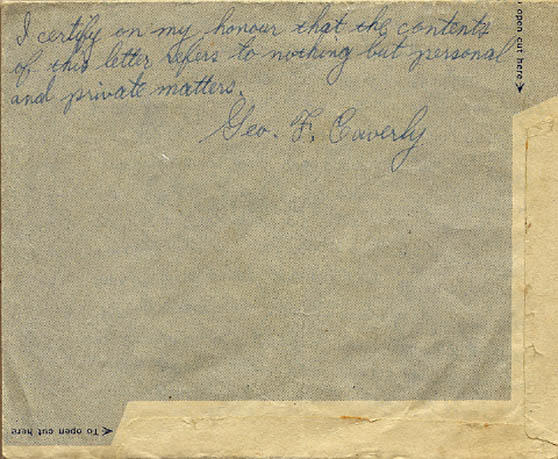 I certify on my honour that the contents
of this letter refers to nothing but personal
and private matters.
Geo. F. Caverly
To open cut here
To open cut here